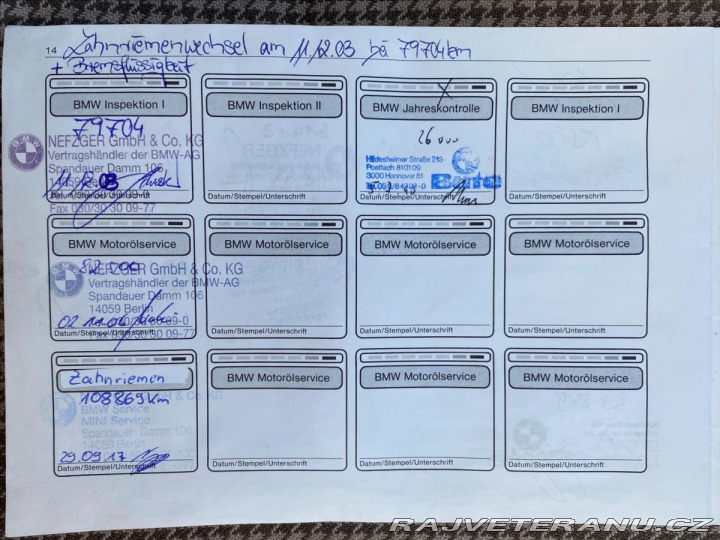 14 Zahnriemenwechsel am 11/12.03 bei 79704 km
+ Bremsflüssigkeit
BMW Inspektion I
79704
NEFZGER GmbH & Co. KG
Vertragshändler der BMW-AG
Spandauer Damm 106
11.12.03
Fax 030/30 30 09-77
Datum/Stempel/Unterschrift
BMW Inspektion II
Datum/Stempel/Unterschrift
BMW Jahreskontrolle
26 000
Hildesheimer Straße 213
Postfach 810109
3000 Hannover 81
Datum/Stempel/Unterschrift
BMW Inspektion I
Datum/Stempel/Unterschrift
BMW Motorölservice
NEFZGER GmbH & Co. KG
Vertragshändler der BMW-AG
Spandauer Damm 106
14059 Berlin
02 11 04
Datum/Stempel/Unterschrift
BMW Motorölservice
Datum/Stempel/Unterschrift
BMW Motorölservice
Datum/Stempel/Unterschrift
BMW Motorölservice
Datum/Stempel/Unterschrift
Zahnriemen
108869 km
& Co. KG
BMW Service
MINI Service
Spandauer Damm 106
14059 Berlin
29.09.17
Datum/Stempel/Unterschrift
BMW Motorölservice
Datum/Stempel/Unterschrift
BMW Motorölservice
Datum/Stempel/Unterschrift
BMW Motorölservice
Datum/Stempel/Unterschrift
RAJVETERANU.CZ